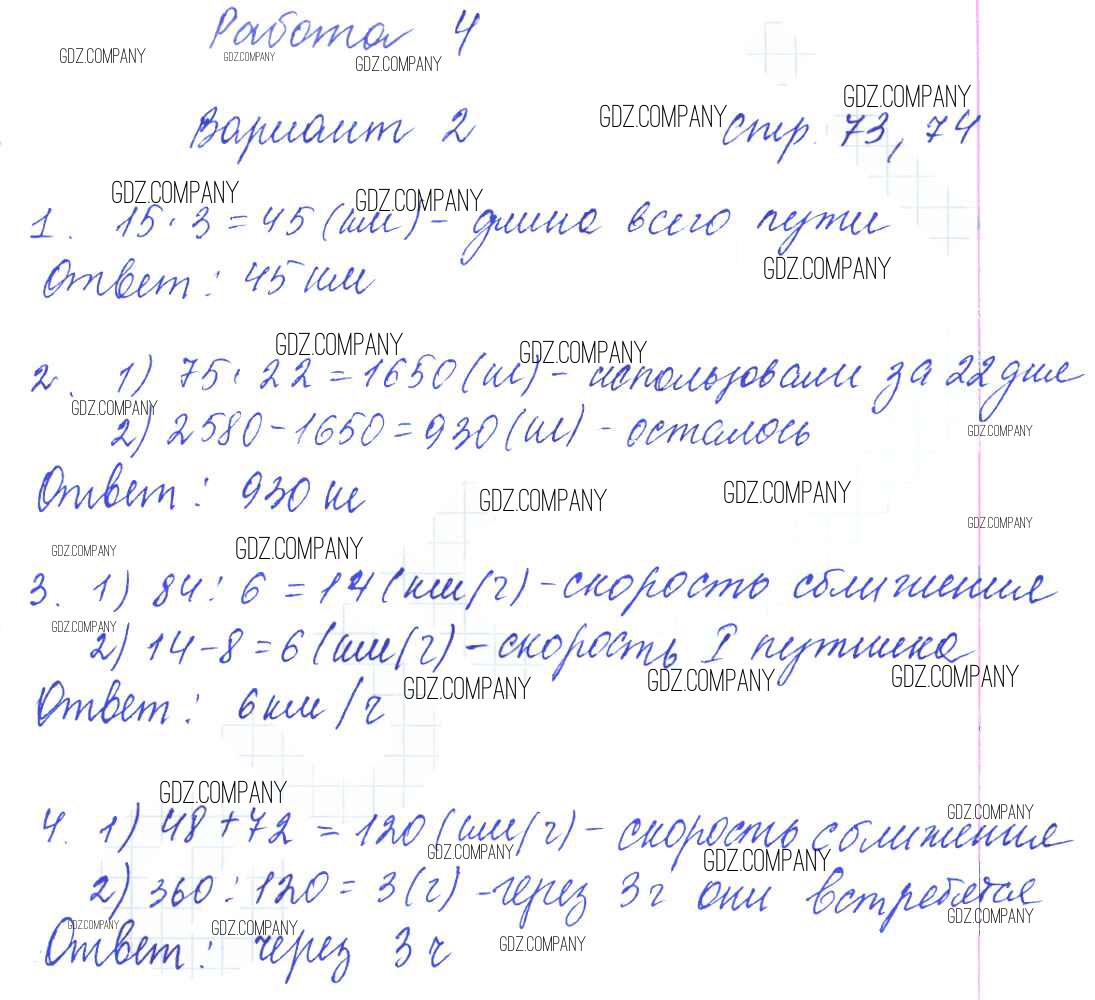 Работа 4
GDZ.COMPANY GDZ.COMPANY GDZ.COMPANY
Вариант 2 GDZ.COMPANY стр. 73, 74
GDZ.COMPANY
GDZ.COMPANY GDZ.COMPANY
1. 15·3=45(км) - длина всего пути
Ответ: 45 км
GDZ.COMPANY
GDZ.COMPANY GDZ.COMPANY
2. 1) 75·22=1650(кг) - использовали за 22 дня
GDZ.COMPANY
2) 2580-1650=930(кг) - осталось
GDZ.COMPANY
Ответ: 930 кг
GDZ.COMPANY GDZ.COMPANY
GDZ.COMPANY
GDZ.COMPANY GDZ.COMPANY
3. 1) 84:6=14(км/ч) - скорость сближения
GDZ.COMPANY
2) 14-8=6(км/ч) - скорость I путника
GDZ.COMPANY GDZ.COMPANY GDZ.COMPANY
Ответ: 6 км/ч
GDZ.COMPANY
GDZ.COMPANY
4. 1) 48+72=120(км/ч) - скорость сближения
GDZ.COMPANY GDZ.COMPANY
2) 360:120=3(ч) - через 3 ч они встретятся
GDZ.COMPANY GDZ.COMPANY GDZ.COMPANY
Ответ: через 3 ч
GDZ.COMPANY